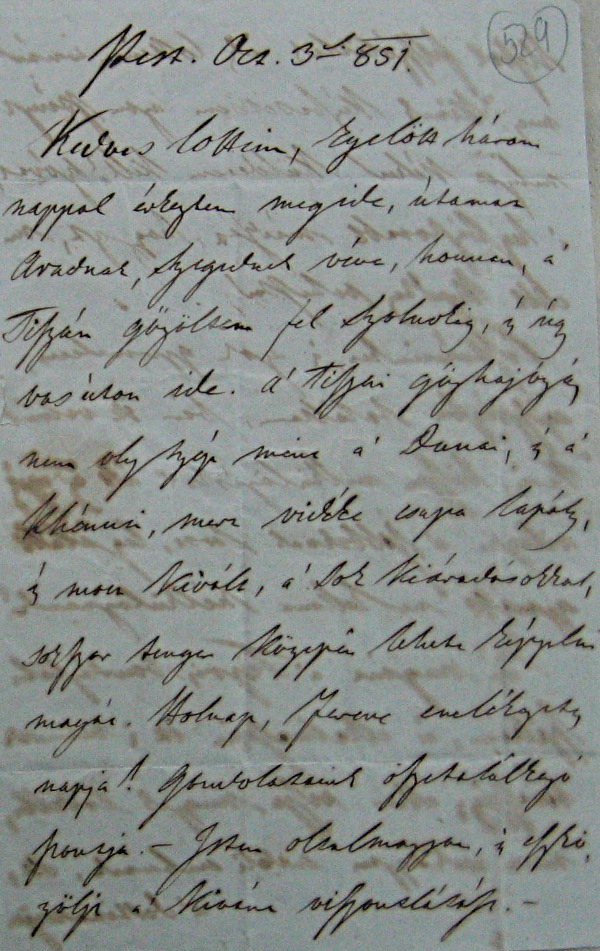 529
Pest. Oct. 3ᵈ 851.
Kedves Lottim, Ezelőtt három
nappal érkeztem meg ide, útamat
Aradnak, Szegednek véve, honnan, á
Tiszán gőzöltem fel Szolnokig, 's úgy
vasúton ide. Á Tiszai gőzhajózás
nem oly szép mint á Dunai, 's á
Rhénusi, mert vidéke csupa lapály,
's most kivált, á sok kiáradásokkal,
sokszor tenger közepén lehete képzelni
magát. Holnap, Ferenc emlékezet
napja! Gondolataink öszetalálkozó
pontja. – Isten oltalmazzon, 's eszkö
zölje á kívánt viszontlátást. –